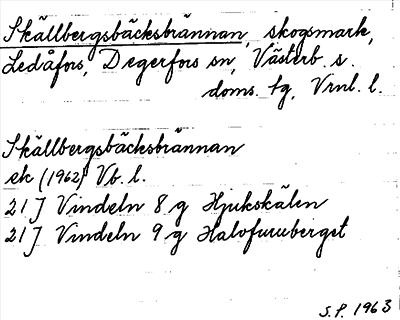 Skällbergsbäcksbrännan, skogsmark,
Ledåfors, Degerfors sn, Västerb. s.
doms. tg, Vrnl. l.
Skällbergsbäcksbrännan
ek (1962) Vb. l.
21 J Vindeln 8 g Hjukskälen
21 J Vindeln 9 g Halvfuruberget
S.P. 1963